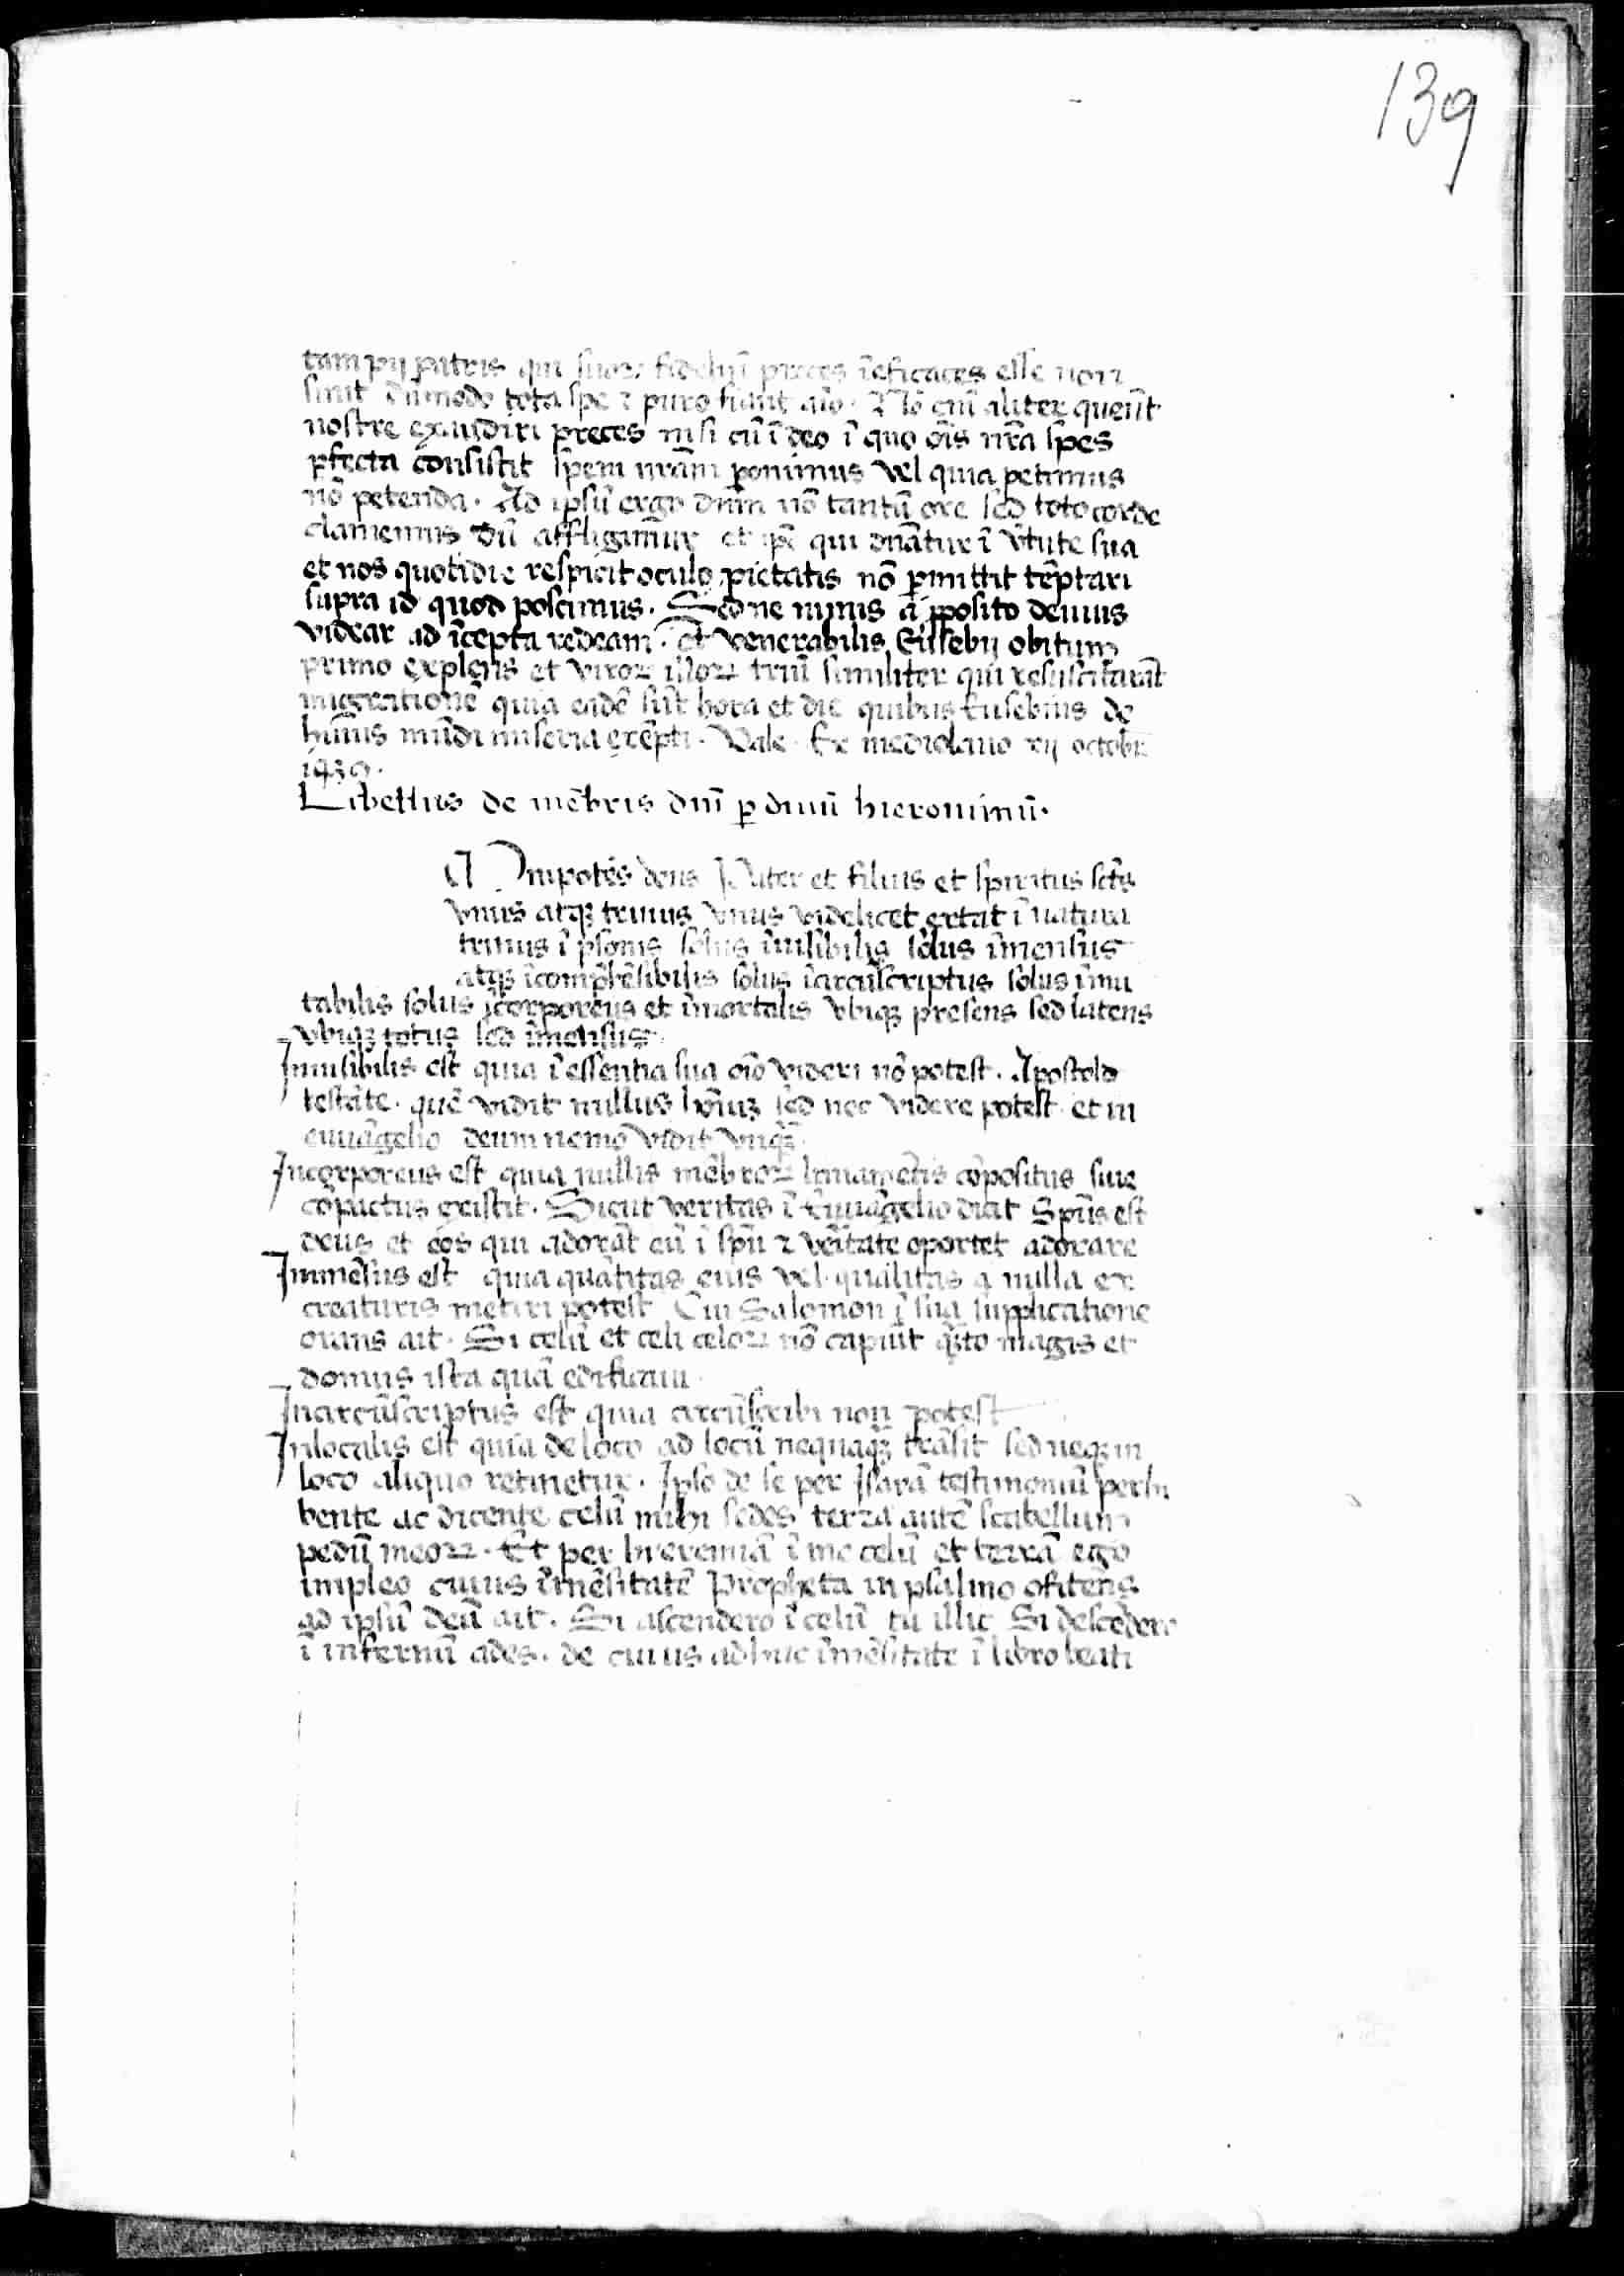 139
tam pij patris qui suoꝝ fideliū preces īeficaces esse non
sinit dūmodo tota spe ⁊ puro fiant aīo. Nō eni aliter queūt
nostre exaudiri preces nisi cū ī deo ī quo oīs nr̄a spes
ꝑfecta consistit spem nr̄am ponimus vel quia petimus
nō petenda. Ad ipsū ergo dnm̄ nō tantū ore sed toto corde
clamemus dū affligimur et ip̄e qui dn̄atur ī v̄tute sua
et nos quotidie respicit oculo pietatis nō ꝑmittit tēptari
supra id quod poscimus. Sed ne nimis a ꝓposito deuius
videar ad īcepta redeam. et venerabilis Eusebij obitum
primo explens et viroꝝ illoꝝ triū similiter qui resuscitarāt
migrationē quia eadē sūt hora et die quibus Eusebius de
huius mūdi miseria exēpti. Vale. Ex mediolano xij octobr̄
1439.
Libellus de mēbris dn̄i ꝑ diuū hieronimū.
Omnipotēs deus Pater et filius et spiritus sct̄s
vnus atqꝫ trinus vnus videlicet extat ī natura
trinus ī ꝑsonis solus īuisibilis solus īmensus
atqꝫ īcomprehēsibilis solus īcircūscriptus solus īmu
tabilis solus īcorporeus et īmortalis vbiqꝫ presens sed latens
vbiqꝫ totus sed īmensus.
Inuisibilis est quia ī essentia sua oīo videri nō potest. Apostolo
testāte. quē vidit nullus hoīuꝫ sed nec videre potest. et in
euuāgelio deum nemo vidit vnqꝫ.
Incorporeus est quia nullis mēbroꝝ liniamētis cōpositus siue
cōpactus existit. Sicut veritas ī Euuāgelio dicit Spūs est
deus et eos qui adorāt eū ī spū ⁊ veritate oportet adorare
Immēsus est quia quātitas eius vel qualitas a nulla ex
creaturis metiri potest Cui Salomon ī sua supplicatione
orans ait. Si celū et celi celoꝝ nō capiūt qꝫto magis et
domus ista quā edificaui.
Incircūscriptus est quia circūscribi non potest
Inlocalis est quia de loco ad locū nequaqꝫ trāsit sed neqꝫ in
loco aliquo retinetur. Ipso de se per Isaiā testimoniū perhi
bente ac dicente celū mihi sedes terra autē scabellum
pedū meoꝝ. Et per hieremiā ī me celū et terrā ego
impleo cuius īmēsitatē Propheta in psalmo ꝯfitens
ad ipsū deū ait. Si ascendero ī celū tu illic Si descēdero
ī infernū ades. de cuius adhuc īmēsitate ī libro beati